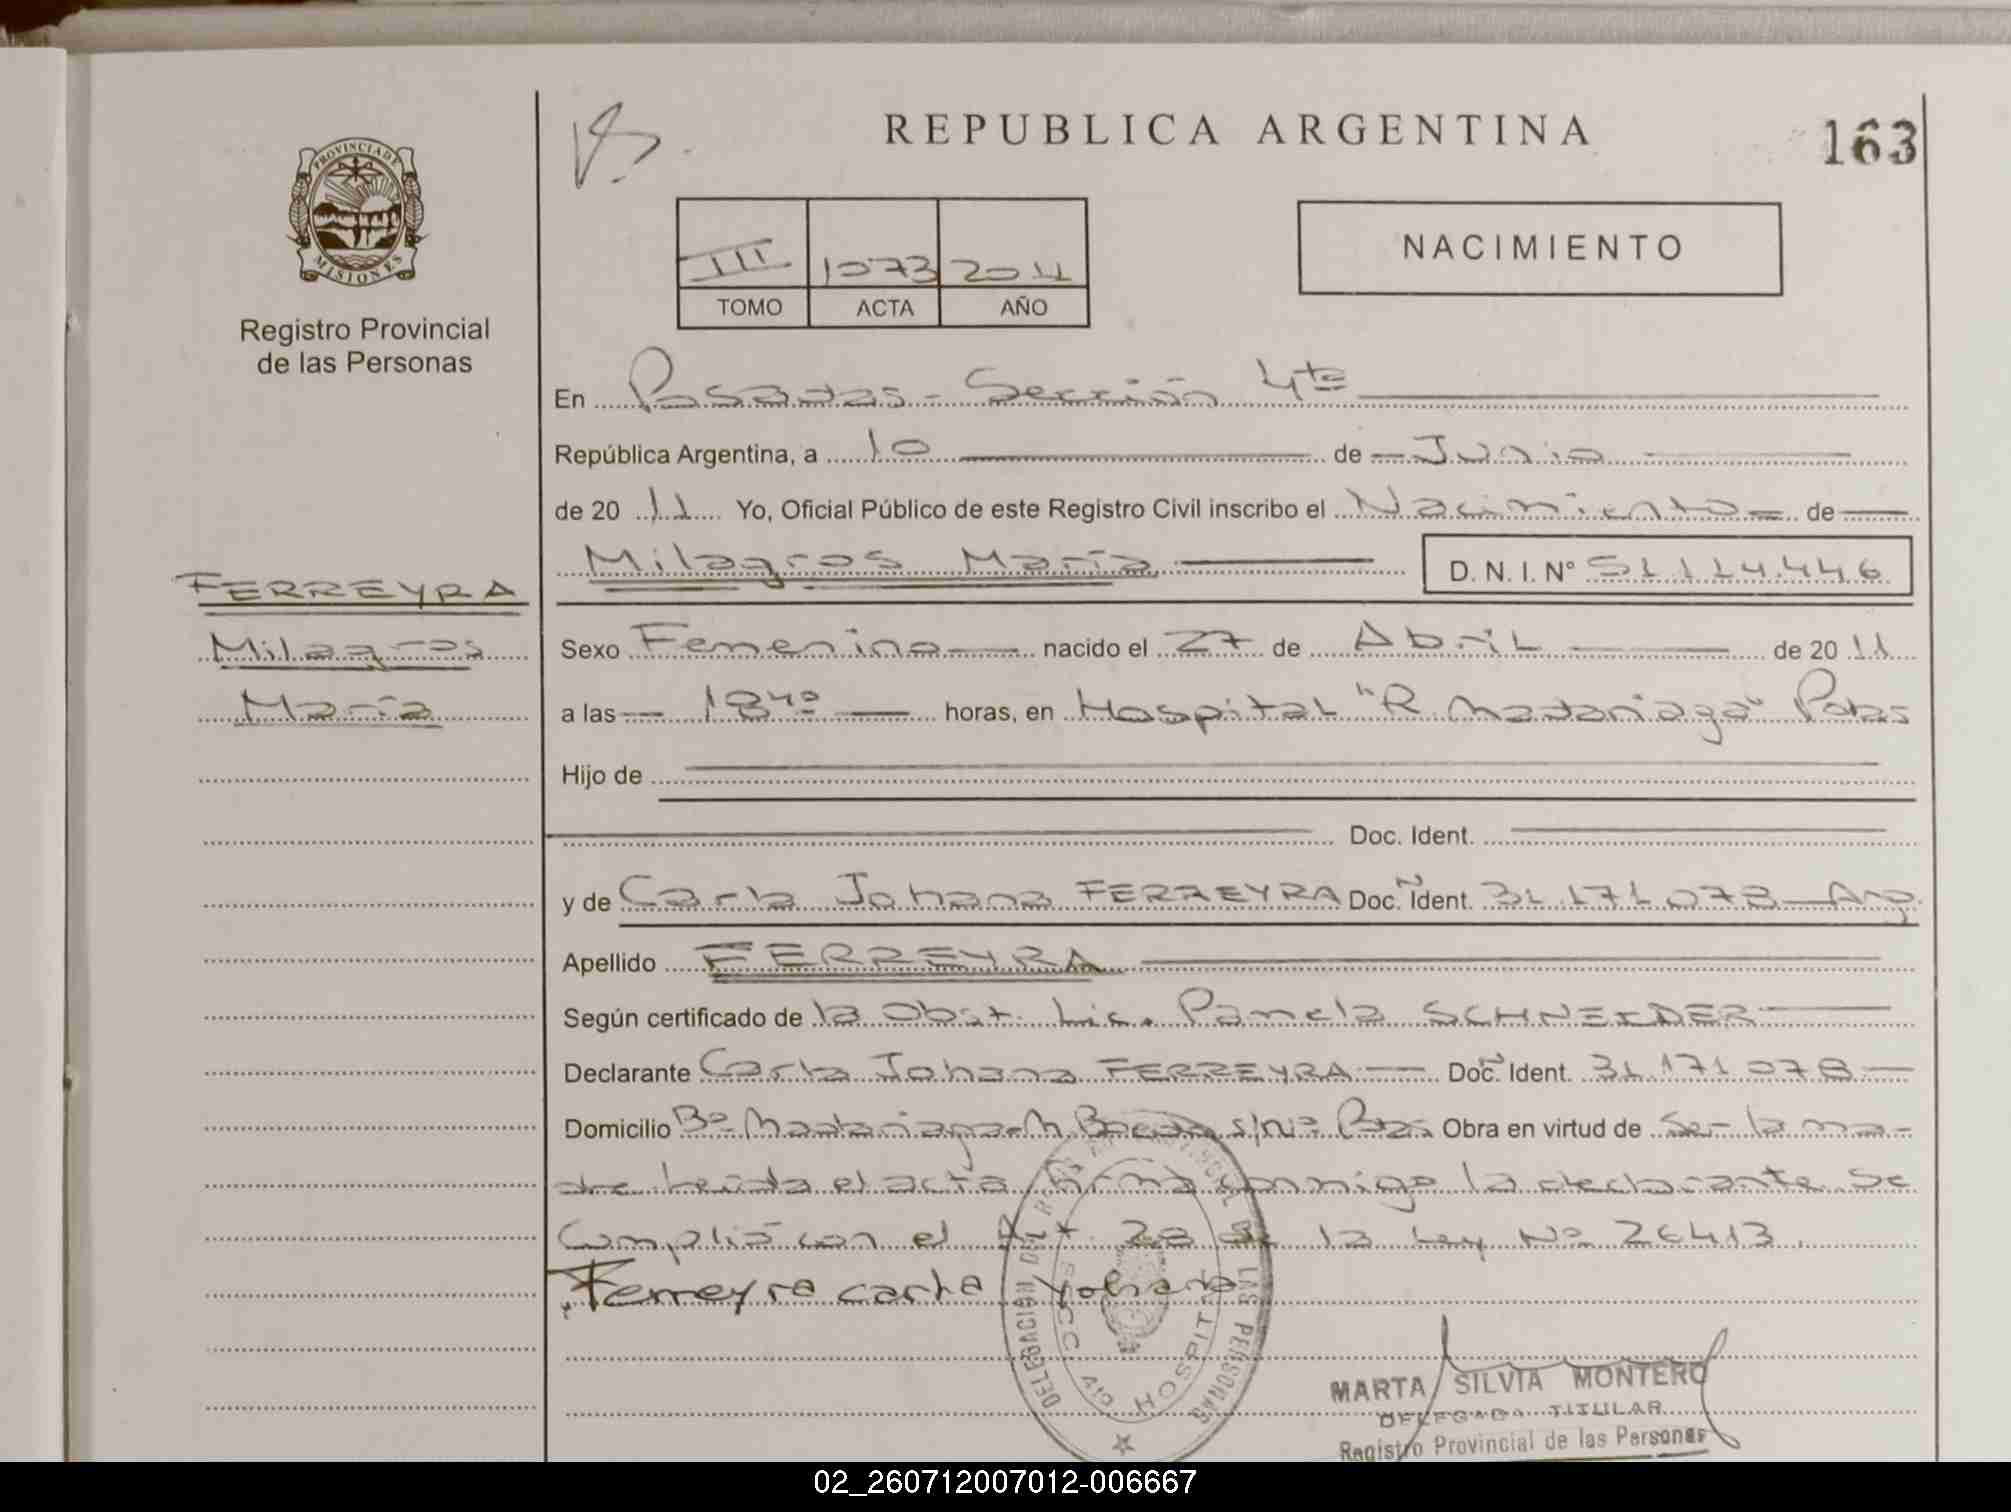 REPUBLICA ARGENTINA
163
PROVINCIA DE
MISIONES
Registro Provincial
de las Personas
III 1073 2011
TOMO ACTA AÑO
NACIMIENTO
En Posadas - Sección 4ta
República Argentina, a 10 de Junio
de 20 11 Yo, Oficial Público de este Registro Civil inscribo el Nacimiento de
Milagros María D. N. I. N° 51.114.446
FERREYRA
Milagros
María
Sexo Femenino nacido el 27 de Abril de 20 11
a las 18 40 horas, en Hospital "R. Madariaga" Pdas
Hijo de
Doc. Ident.
y de Carla Johana FERREYRA Doc. N° Ident. 31.171.078 Arg
Apellido FERREYRA
Según certificado de la Obst. Lic. Pamela SCHNEIDER
Declarante Carla Johana FERREYRA Doc. N° Ident. 31.171.078
Domicilio B° Madariaga s/N° Pdas Obra en virtud de ser la ma-
dre Leída el acta firma conmigo la declarante Se
Cumplió con el Art 28 de la Ley N° 26413.
Ferreyra carla Yohana
DELEGACIÓN DEL REGISTRO PROVINCIAL DE LAS PERSONAS
SECC 4ta HOSPITAL
MARTA SILVIA MONTERO
DELEGADA TITULAR
Registro Provincial de las Personas
02_260712007012-006667